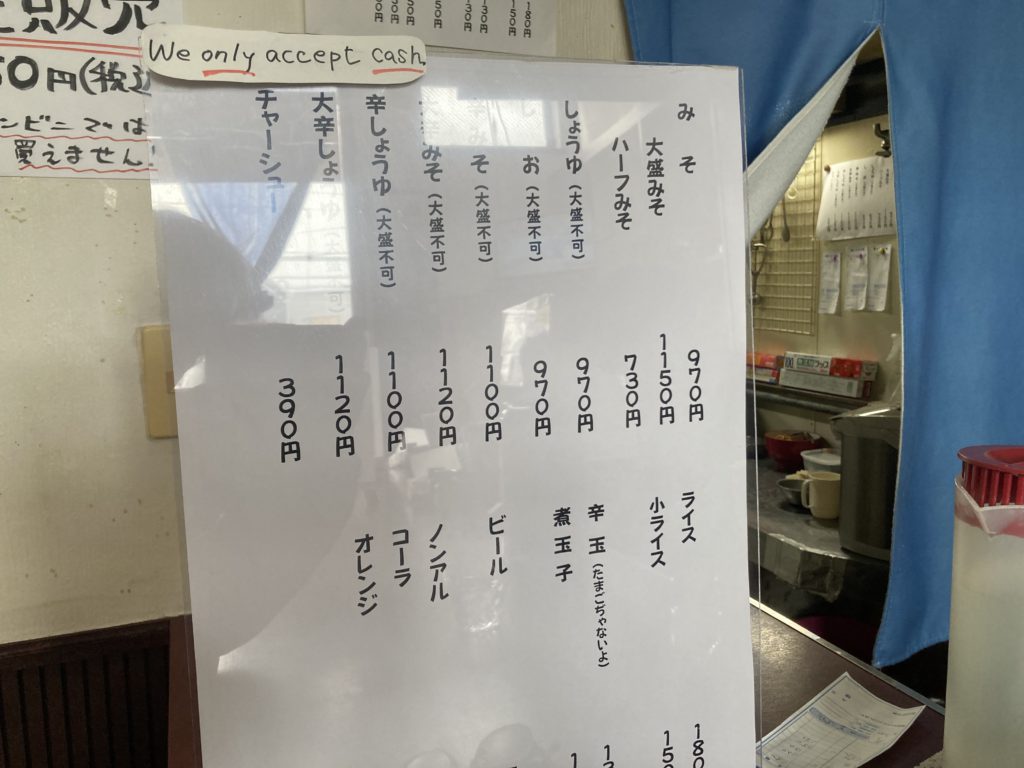 We only accept cash.
みそ 970円
大盛みそ 1150円
ハーフみそ 730円
しょうゆ(大盛不可) 970円
しお(大盛不可) 970円
みそ(大盛不可) 1100円
みそ(大盛不可) 1120円
辛しょうゆ(大盛不可) 1100円
大辛しょうゆ(大盛不可) 1120円
チャーシュー 390円
ライス
小ライス
辛玉(たまごぢゃないよ)
煮玉子
ビール
ノンアル
コーラ
オレンジ
50円(税込
ンビニでは
買えません